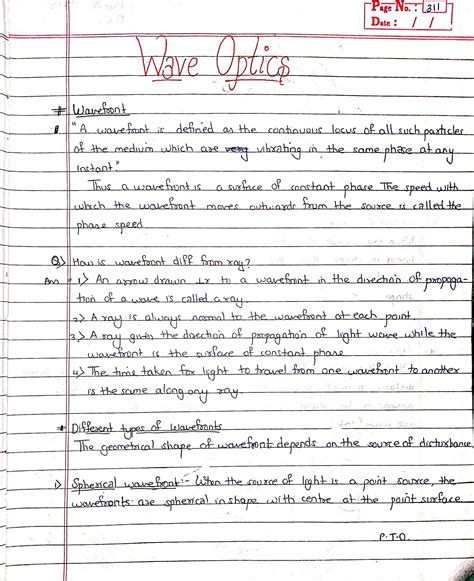 Page No. : 311
Date : / /
Wave Optics
# Wavefront
"A wavefront is defined as the continuous locus of all such particles
of the medium which are vibrating in the same phase at any
instant."
Thus a wavefront is a surface of constant phase The speed with
which the wavefront moves outwards from the source is called the
phase speed
Q> How is wavefront diff from ray?
Ans 1> An arrow drawn ⊥r to a wavefront in the direction of propoga-
tion of a wave is called a ray.
2> A ray is always normal to the wavefront at each point
3> A ray gives the direction of propagation of light wave while the
wavefront is the surface of constant phase
4> The time taken for light to travel from one wavefront to another
is the same along any ray.
# Different types of wavefronts
The geometrical shape of wavefront depends on the source of disturbance
1> Spherical wavefront:- When the source of light is a point source, the
wavefronts are spherical in shape with centre at the point surface
P.T.O.